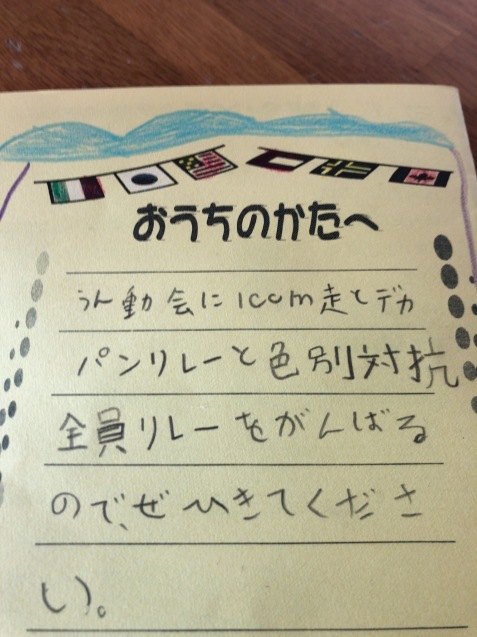 おうちのかたへ
うん動会に100m走とデカ
パンリレーと色別対抗
全員リレーをがんばる
ので、ぜひきてくださ
い。